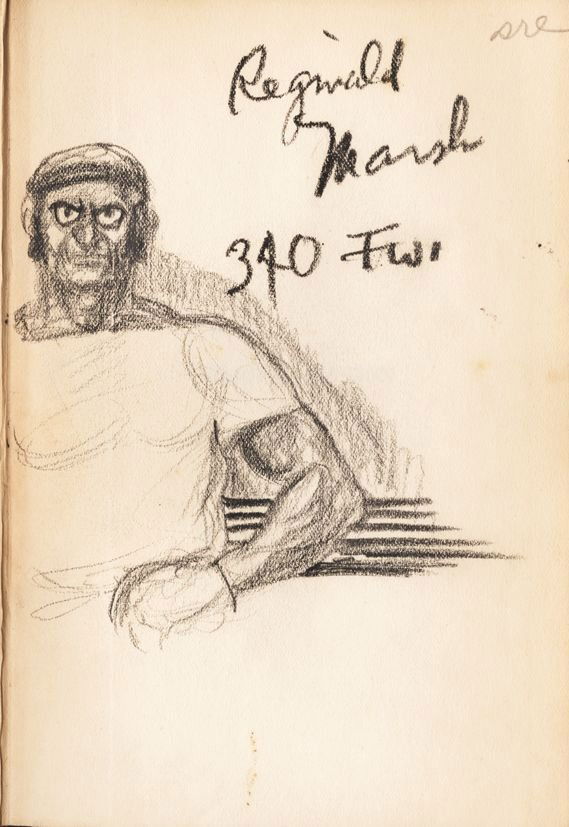 sre
Reginald
Marsh
340